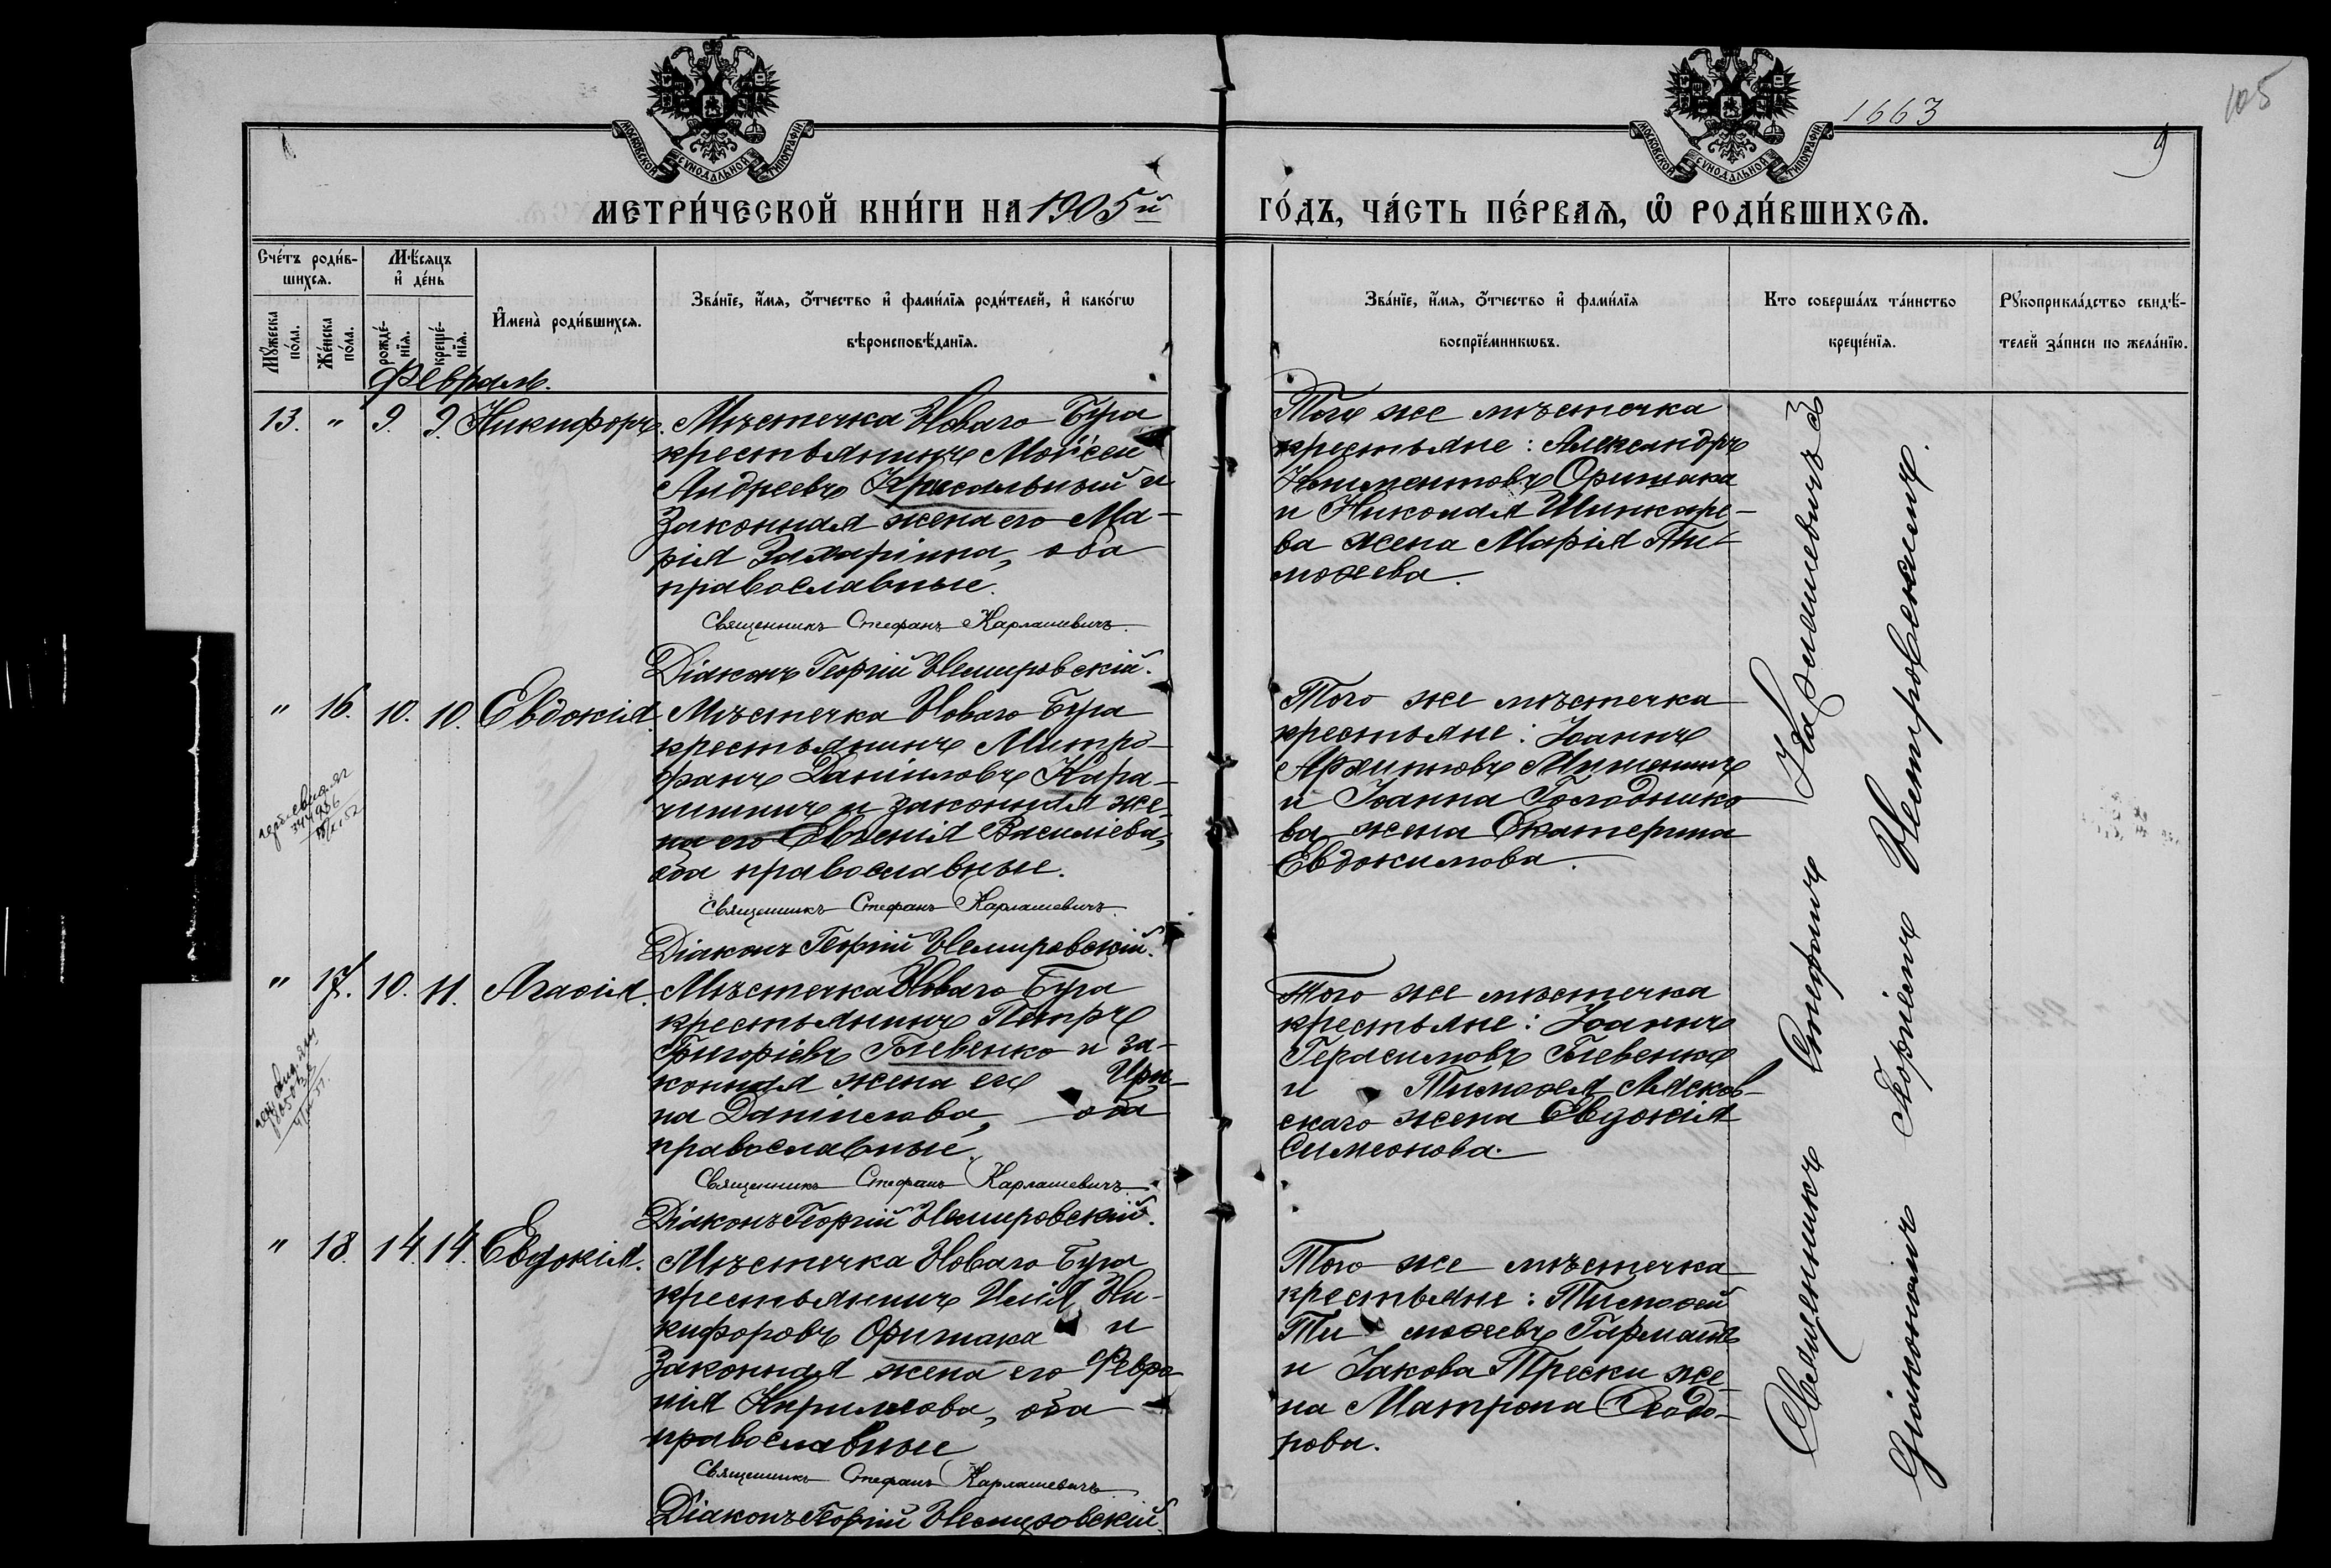 105
1663
МОСКОВСКОЙ СѴНОДАЛЬНОЙ ТИПОГРАФІИ
МОСКОВСКОЙ СѴНОДАЛЬНОЙ ТИПОГРАФІИ
МЕТРИ́ЧЕСКОЙ КНИ́ГИ НА 1905й
ГО́ДЪ, ЧА́СТЬ ПЕ́РВАѦ, Ѡ҆ РОДИ́ВШИХСѦ.
Сче́тъ роди́в-
шихсѧ.
Мѣ́сѧцъ
и҆ де́нь
Мꙋ́жеска
по́ла.
Же́нска
по́ла.
рожде́-
нїѧ.
креще́-
нїѧ.
И҆мена̀ роди́вшихсѧ.
Зва́нїе, и҆́мѧ, ѻ҆́тчество и҆ фами́лїѧ роди́телей, и҆ како́гѡ
вѣроисповѣ́данїѧ.
Зва́нїе, и҆́мѧ, ѻ҆́тчество и҆ фами́лїѧ
воспрїе́мникѡвъ.
Кто соверша́лъ та́инство
креще́нїѧ.
Рꙋкоприкла́дство свидѣ́-
телей за́писи по жела́нїю.
Февраль.
13. " 9. 9. Никифоръ.
Мѣстечка Новаго Буга
крестьянинъ Моисей
Андреевъ и
законная жена его Ма-
рія оба
православные.
Священникъ Стефанъ Карлашевичъ.
Діаконъ Георгій Немировскій.
Того же мѣстечка
крестьяне: Александръ
Климентовъ Оришака
и Николая Шинкаре-
ва жена Марія Ти-
моѳеева.
" 16. 10. 10. Евдокія.
Мѣстечка Новаго Буга
крестьянинъ Митро-
фанъ Даніиловъ Кара-
и законная же-
на его Евгенія Василіева,
оба православные.
Священникъ Стефанъ Карлашевичъ.
Діаконъ Георгій Немировскій.
Того же мѣстечка
крестьяне: Іоаннъ
Архиповъ
и Іоанна Голоднико
ва жена Екатерина
Евдокимова.
" 17. 10. 11. Агафія.
Мѣстечка Новаго Буга
крестьянинъ Петръ
Григоріевъ Глевенко и за-
конная жена его Ири-
на Даніилова, оба
православные.
Священникъ Стефанъ Карлашевичъ.
Діаконъ Георгій Немировскій.
Того же мѣстечка
крестьяне: Іоаннъ
Герасимовъ Глевенко
и Тимоѳея Лясков-
скаго жена Евдокія
Симеонова.
" 18. 14. 14. Евдокія.
Мѣстечка Новаго Буга
крестьянинъ Илія Ни-
кифоровъ Оришака и
законная жена его Февро
нія Кириллова, оба
православные
Священникъ Стефанъ Карлашевичъ.
Діаконъ Георгій Немировскій.
Того же мѣстечка
крестьяне: Тимоѳей
Ти моѳеевъ
и Іакова Трески же-
на Матрона Ѳеодо-
рова.
Священникъ Стефанъ Карлашевичъ съ
Діакономъ Георгіемъ Немировскимъ.